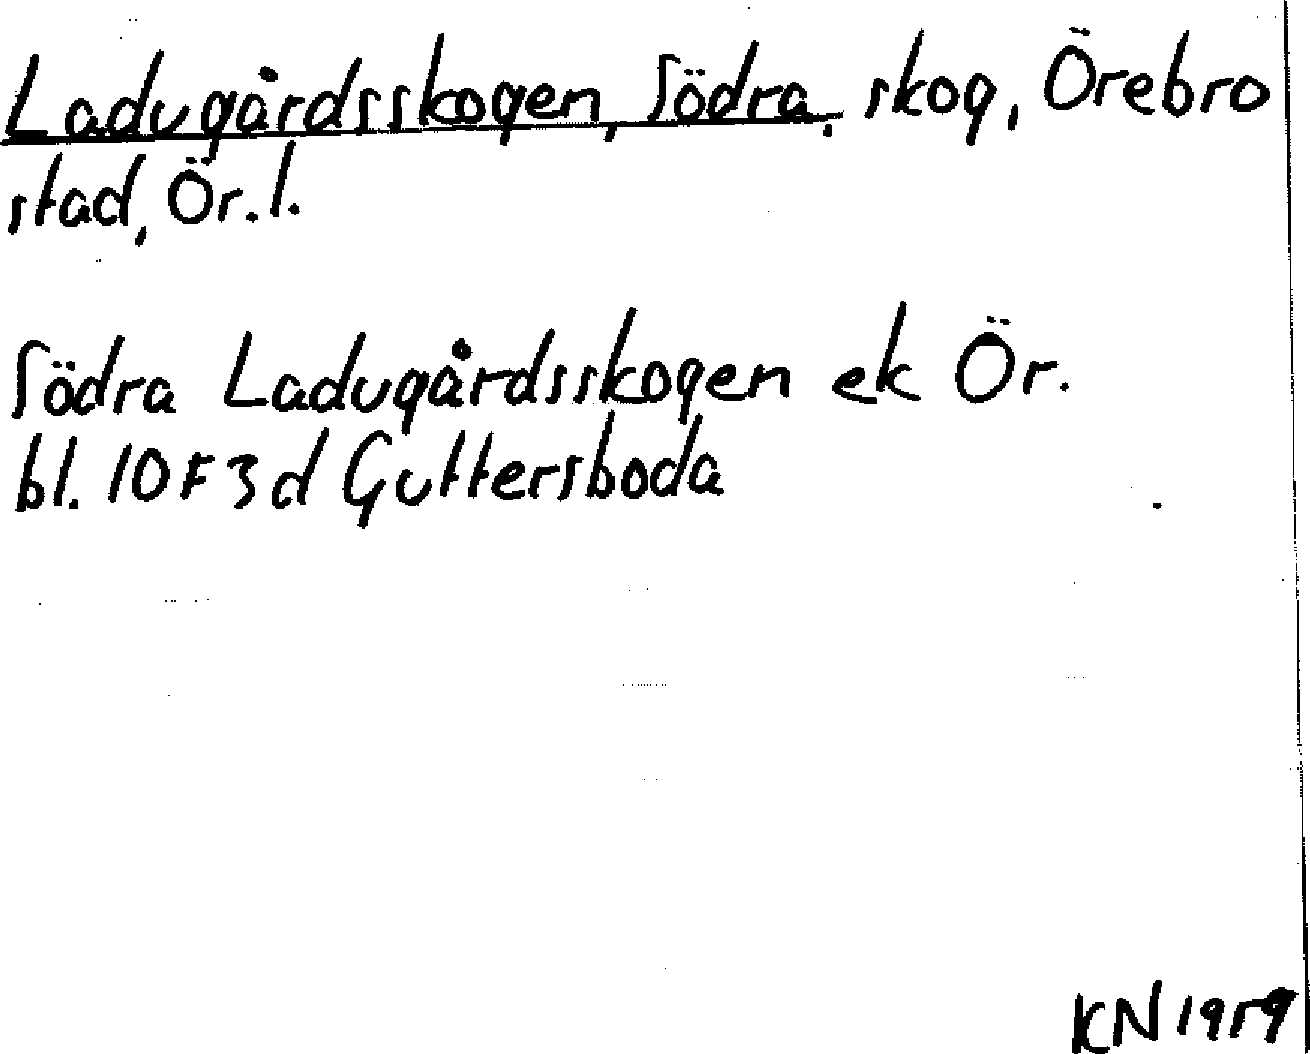 Ladugårdsskogen, Södra, skog, Örebro
stad, Ör. l.
Södra Ladugårdsskogen ek Ör.
bl. 10F 3d Guttersboda
KN 1959